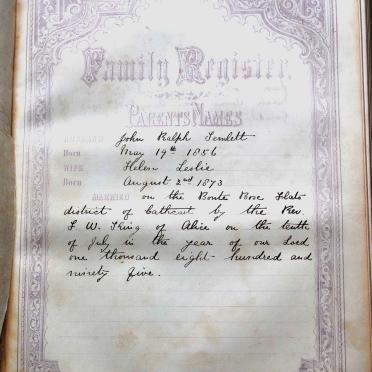 Family Register.
PARENTS NAMES
HUSBAND John Ralph Temlett
Born May 19th 1856
WIFE Helen Leslie
Born August 2nd 1873
MARRIED on the Bonte Bok Flats
district of Cathcart by the Rev.
J. W. King of Alice on the tenth
of July in the year of our Lord
one thousand eight-hundred and
ninety five.